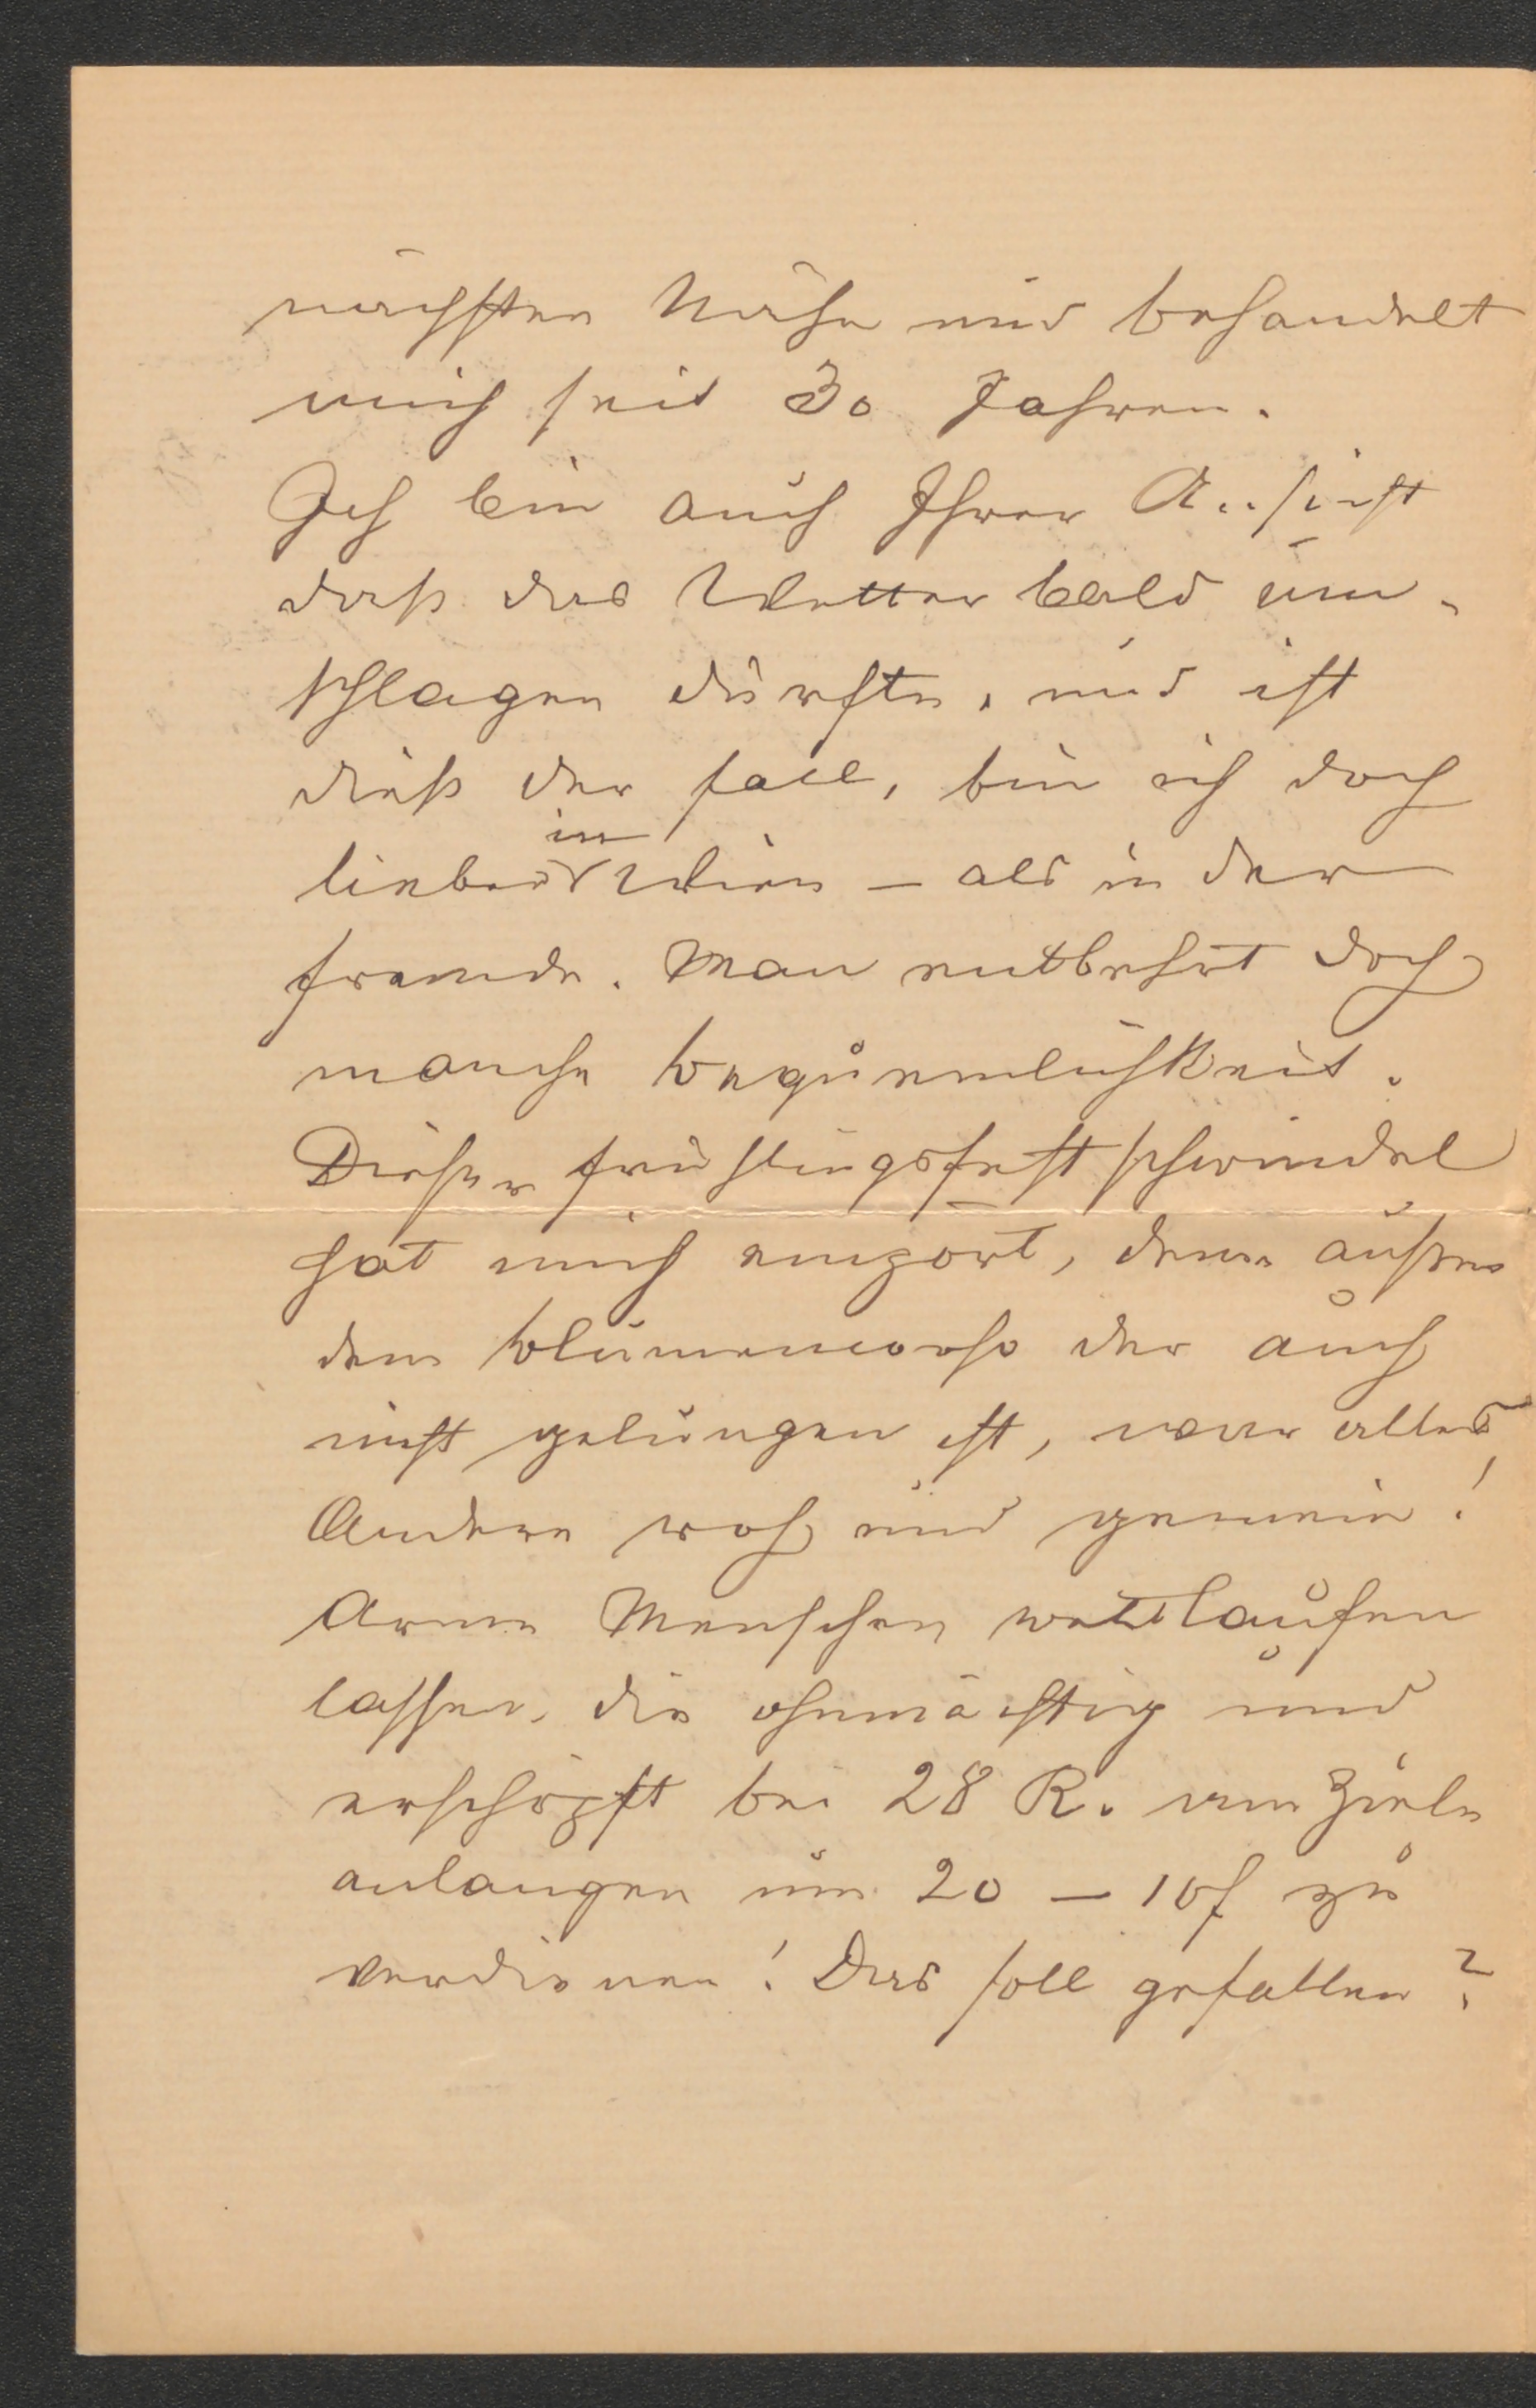 nächsten Nähe und behandelt
mich seit 30 Jahren.
Ich bin auch Ihrer Ansicht
daß das Wetter bald um-
schlagen dürfte, und ist
dieß der Fall, bin ich doch
lieber in Wien – als in der
Fremde. Man entbehrt doch
manche Bequemlichkeit.
Dieser Frühlingsfestschwindel
hat mich empört, denn außer
dem Blumencorso der auch
nicht gelungen ist, war alles
Andere roh und gemein!
Arme Menschen wettlaufen
lassen, die ohnmächtig und
erschöpft bei 28 R. am Ziele
anlangen um 20 – 10f zu
verdienen! Das soll gefallen?